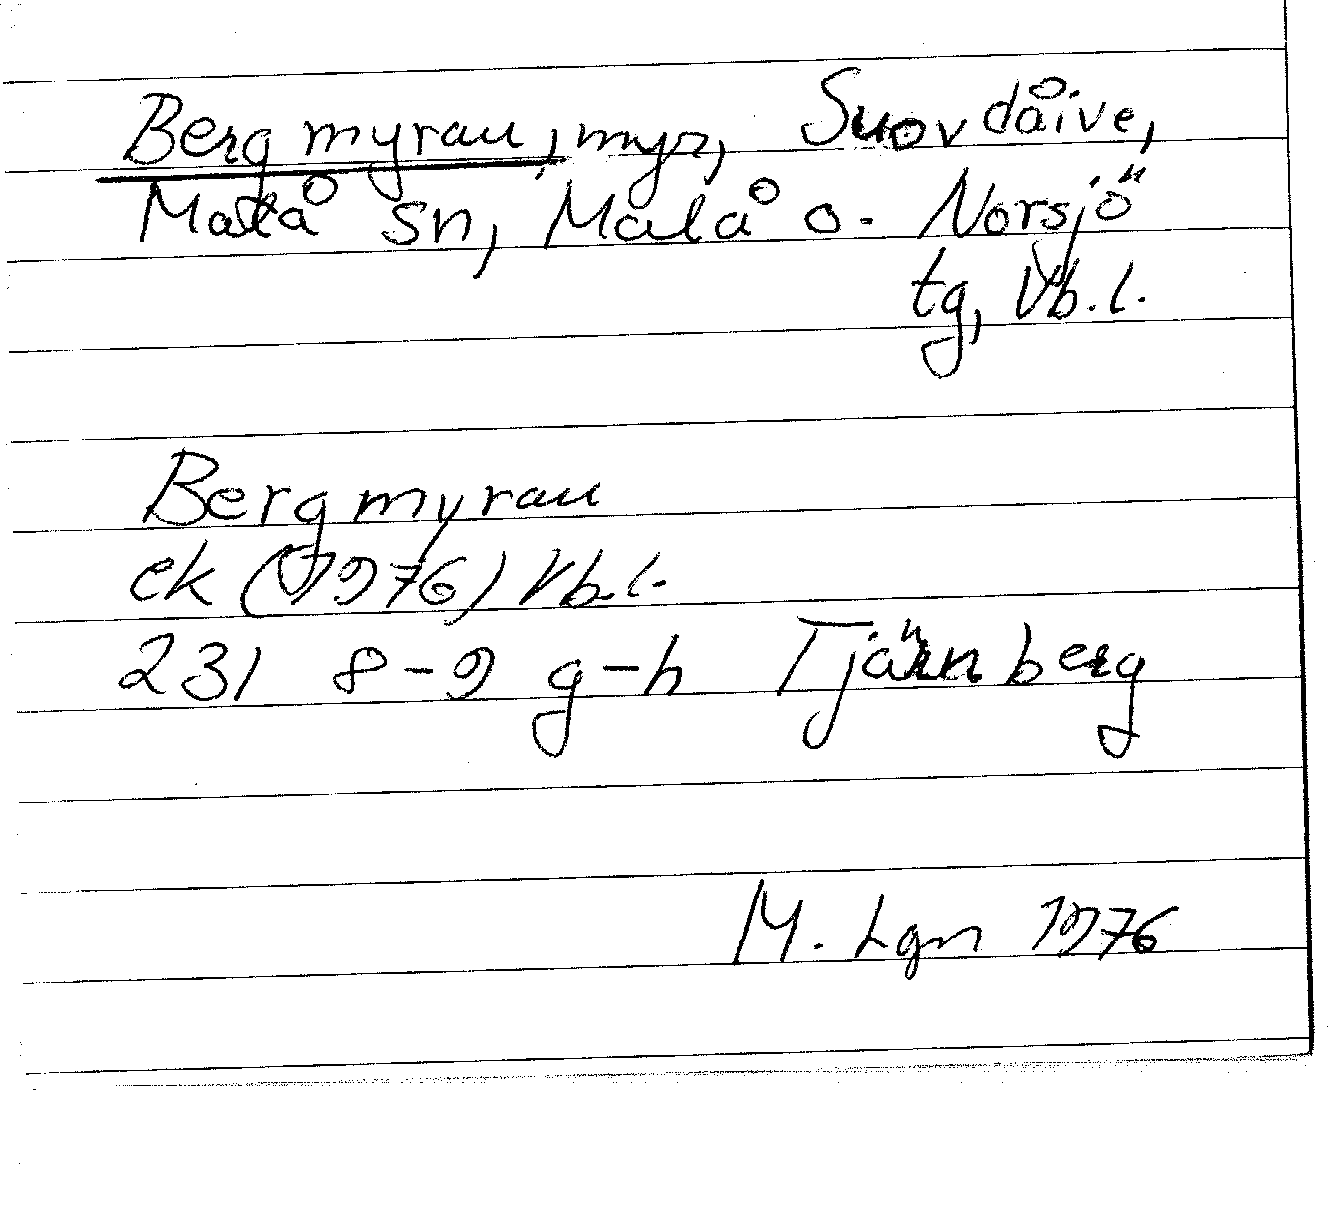 Bergmyrau, myr, Suovdåive,
Malå sn, Malå o. Norsjö
tg, Vb.l.
Bergmyrau
ek (1976) Vb.l.
231 8-9 g-h Tjärnberg
M. Lgn 1976